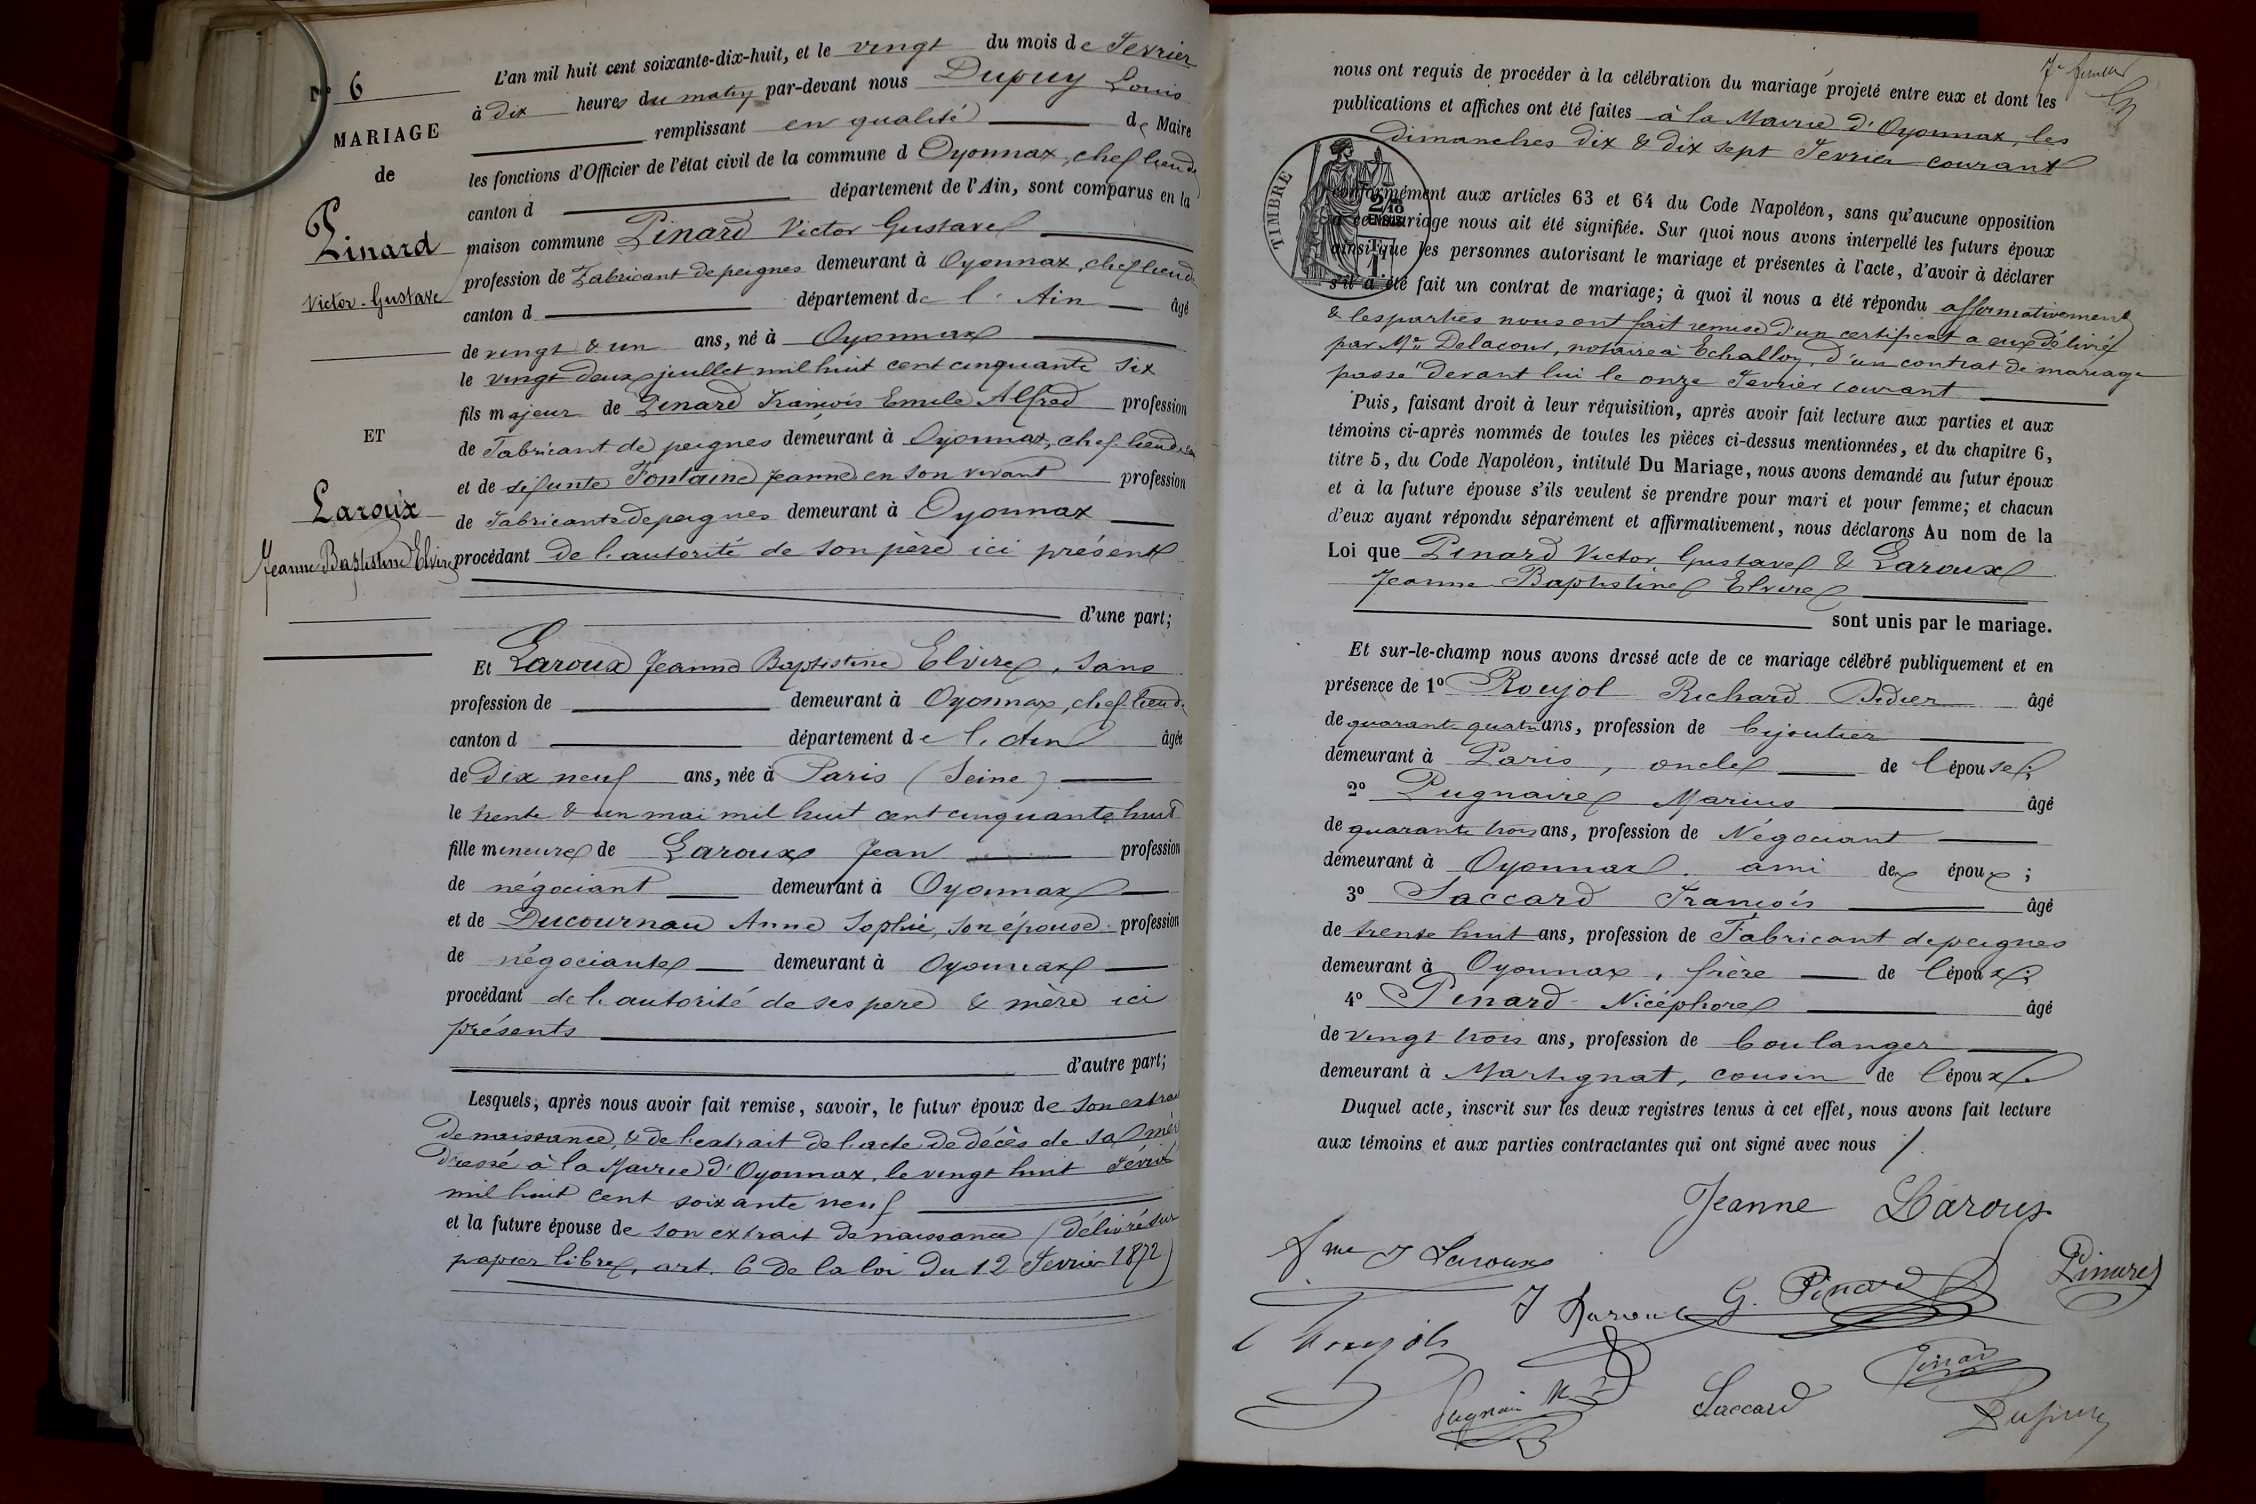 N° 6
MARIAGE
de
Pinard
Victor-Gustave
ET
Laroux
Jeanne Baptistine Elvire
L'an mil huit cent soixante-dix-huit, et le vingt du mois de Fevrier
à dix heures du matin par-devant nous Dupuy Louis
remplissant en qualité de Maire
les fonctions d'Officier de l'état civil de la commune d Oyonnax, chef lieu de
canton d département de l'Ain, sont comparus en la
maison commune Pinard Victor Gustave
profession de Fabricant de peignes demeurant à Oyonnax, chef lieu de
canton d département de l'Ain âgé
de vingt & un ans, né à Oyonnax
le vingt deux juillet mil huit cent cinquante six
fils majeur de Pinard François Emile Alfred profession
de Fabricant de peignes demeurant à Oyonnax, chef lieu de
et de défunte Fontaine Jeanne en son vivant profession
de Fabricante de peignes demeurant à Oyonnax
procédant de l'autorité de son père ici présent
d'une part;
Et Laroux Jeanne Baptistine Elvire, sans
profession de demeurant à Oyonnax, chef lieu de
canton d département de l'Ain âgée
de Dix neuf ans, née à Paris (Seine)
le trente & un mai mil huit cent cinquante huit
fille mineure de Laroux Jean profession
de négociant demeurant à Oyonnax
et de Ducournau Anne Sophie, son épouse profession
de négociante demeurant à Oyonnax
procédant de l'autorité de ses pere & mère ici
présents
d'autre part;
Lesquels, après nous avoir fait remise, savoir, le futur époux de son extrait
de naissance, & de l'extrait de l'acte de décès de sa mère
dressé à la Mairie d'Oyonnax, le vingt huit Février
mil huit cent soixante neuf
et la future épouse de son extrait de naissance (délivré sur
papier libre, art. 6 de la loi du 12 Fevrier 1872)
7e feuillet
nous ont requis de procéder à la célébration du mariage projeté entre eux et dont les
publications et affiches ont été faites à la Mairie d'Oyonnax, les
dimanches dix & dix sept Fevrier courant
TIMBRE
conformément aux articles 63 et 64 du Code Napoléon, sans qu'aucune opposition
à ce mariage nous ait été signifiée. Sur quoi nous avons interpellé les futurs époux
ainsi que les personnes autorisant le mariage et présentes à l'acte, d'avoir à déclarer
s'il a été fait un contrat de mariage; à quoi il nous a été répondu affirmativement
& les parties nous ont fait remise d'un certificat a eux délivré
par Me Delacour, notaire à Echallon, d'un contrat de mariage
passé devant lui le onze Fevrier courant
Puis, faisant droit à leur réquisition, après avoir fait lecture aux parties et aux
témoins ci-après nommés de toutes les pièces ci-dessus mentionnées, et du chapitre 6,
titre 5, du Code Napoléon, intitulé Du Mariage, nous avons demandé au futur époux
et à la future épouse s'ils veulent se prendre pour mari et pour femme; et chacun
d'eux ayant répondu séparément et affirmativement, nous déclarons Au nom de la
Loi que Pinard Victor Gustave & Laroux
Jeanne Baptistine Elvire
sont unis par le mariage.
Et sur-le-champ nous avons dressé acte de ce mariage célébré publiquement et en
présence de 1° Roujol Richard Didier âgé
de quarante quatre ans, profession de bijoutier
demeurant à Paris, oncle de l'épouse;
2° Pugnaire Marius âgé
de quarante trois ans, profession de Négociant
demeurant à Oyonnax. ami des époux;
3° Saccard François âgé
de trente huit ans, profession de Fabricant de peignes
demeurant à Oyonnax, frère de l'époux;
4° Pinard Nicéphore âgé
de vingt trois ans, profession de boulanger
demeurant à Martignat, cousin de l'époux.
Duquel acte, inscrit sur les deux registres tenus à cet effet, nous avons fait lecture
aux témoins et aux parties contractantes qui ont signé avec nous
Jeanne Laroux
fme J Laroux
Pinard
J Laroux G. Pinard
Roujol
Pinard
Pugnaire M
Saccard
Dupuy